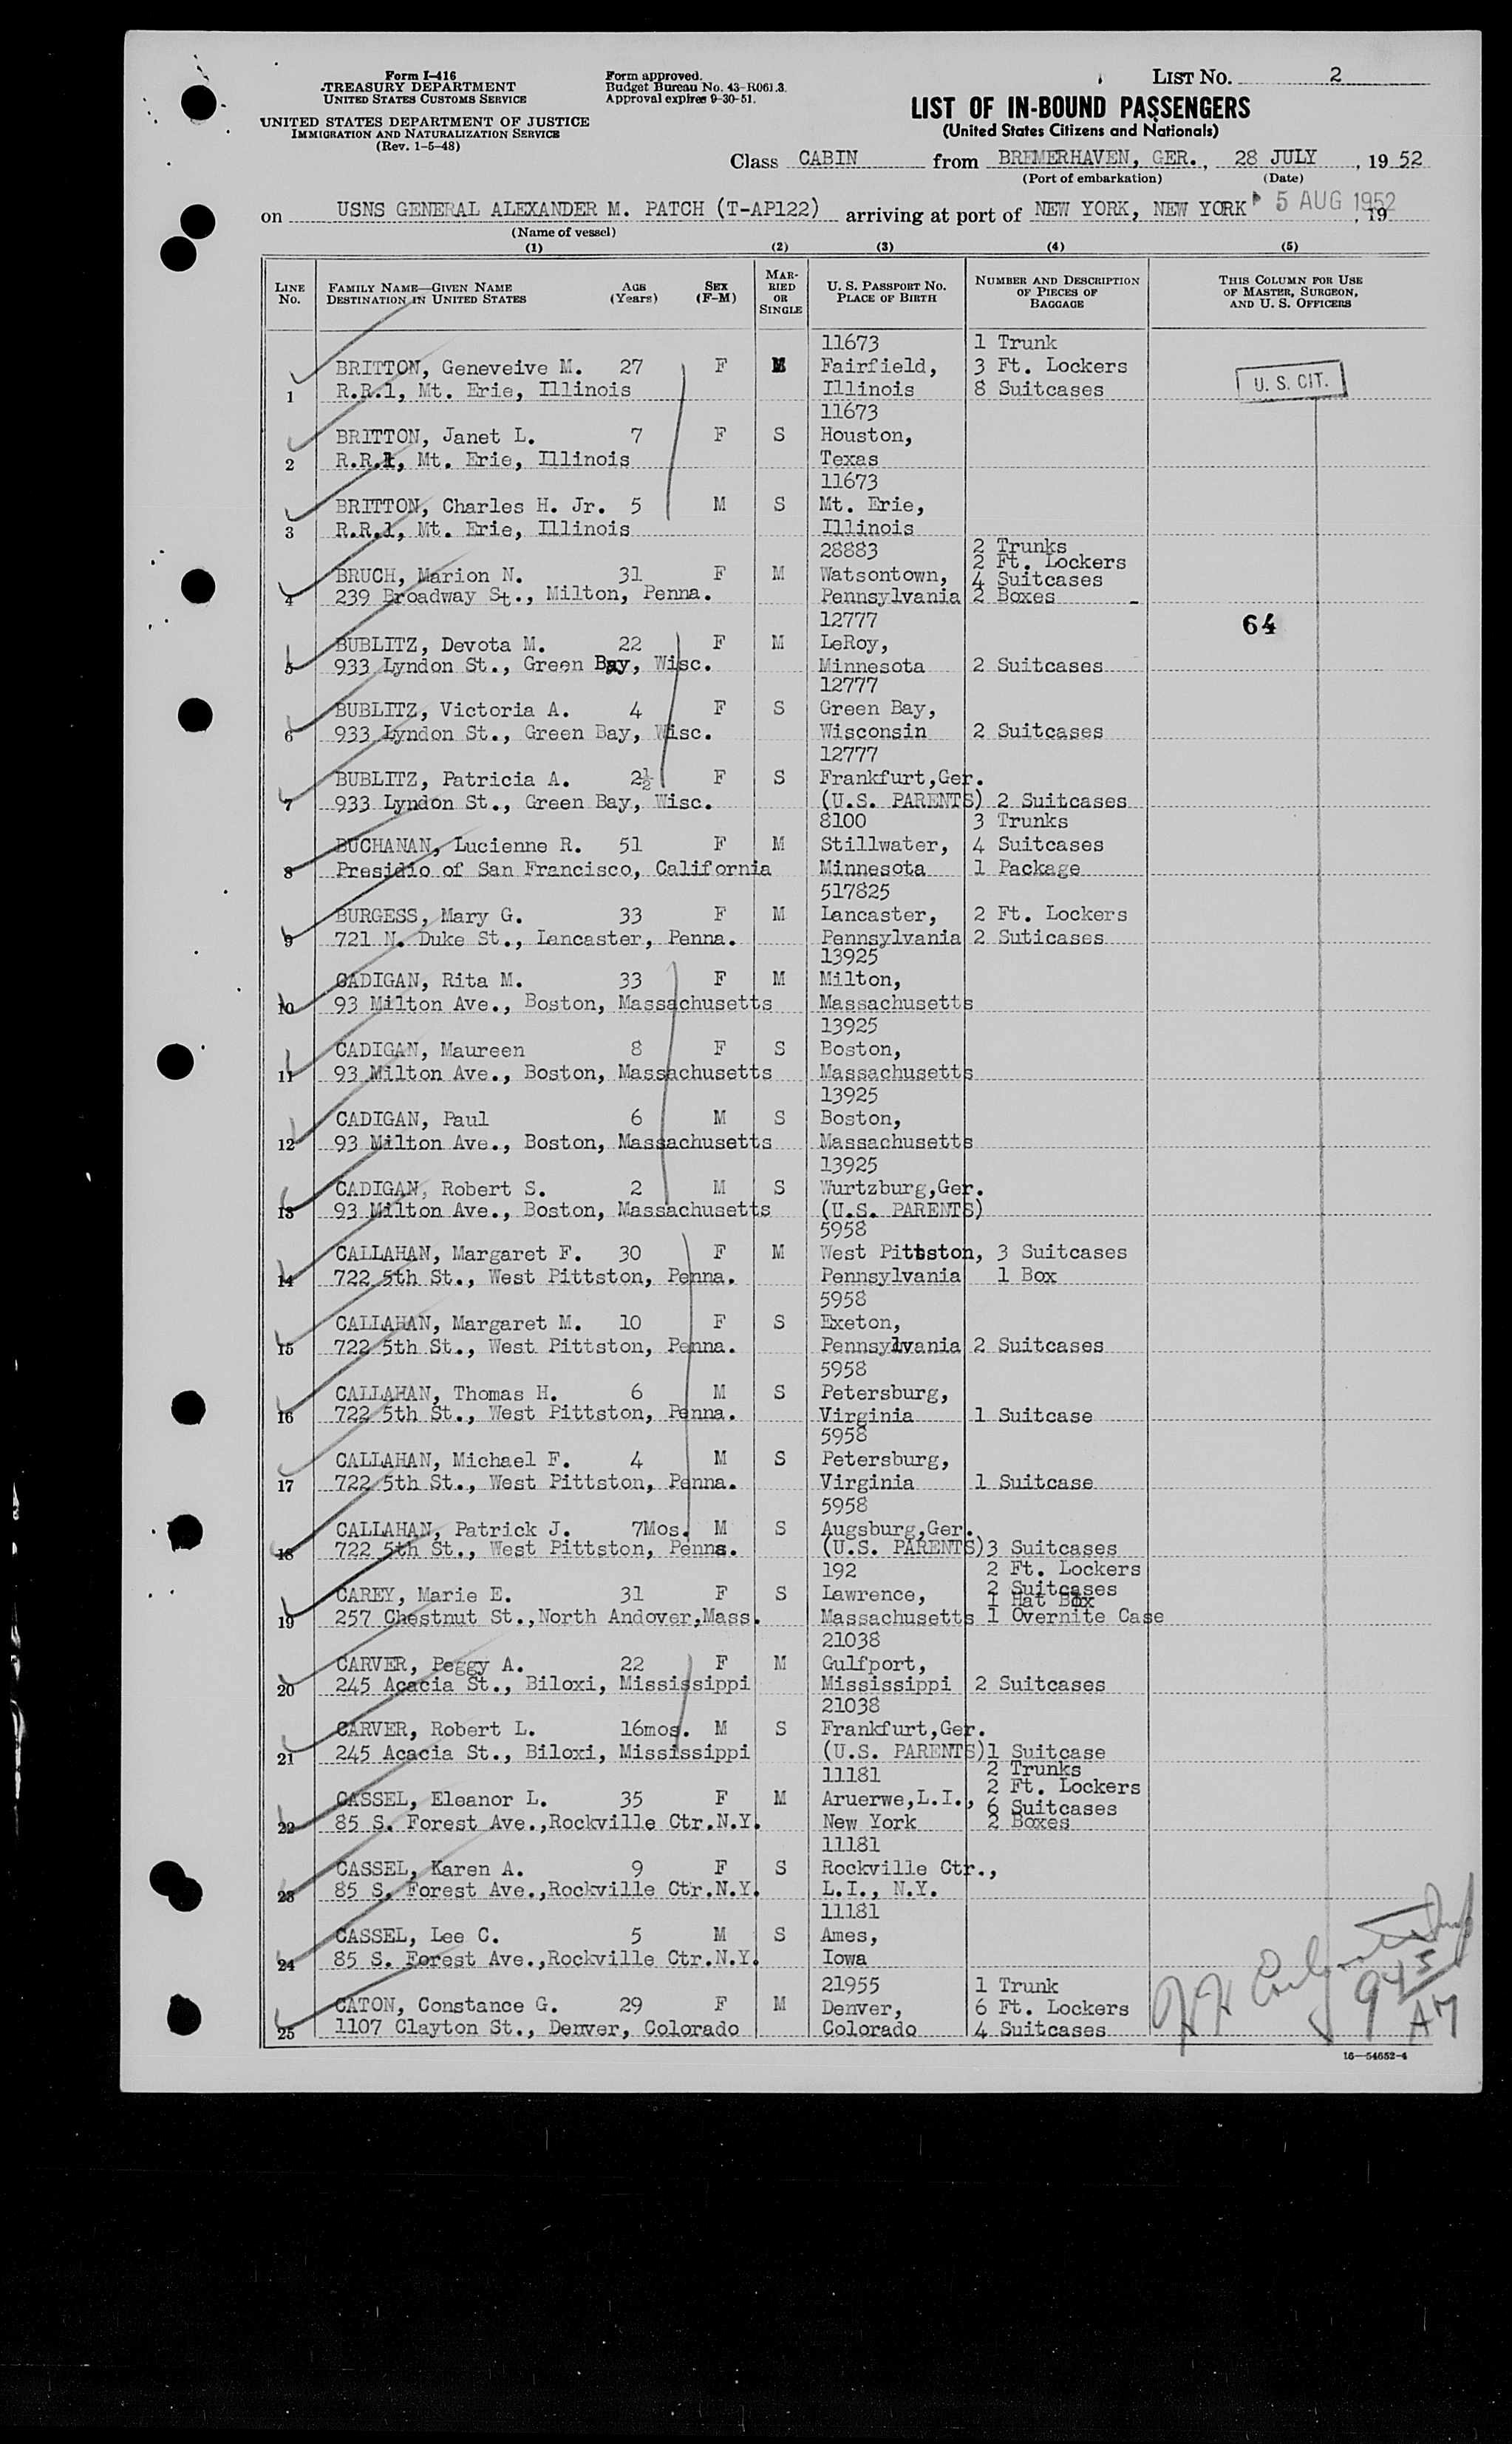 Form I-416
TREASURY DEPARTMENT
UNITED STATES CUSTOMS SERVICE
UNITED STATES DEPARTMENT OF JUSTICE
IMMIGRATION AND NATURALIZATION SERVICE
(Rev. 1-5-48)
Form approved.
Budget Bureau No. 43-R061.3.
Approval expires 9-30-51.
LIST NO. 2
LIST OF IN-BOUND PASSENGERS
(United States Citizens and Nationals)
Class CABIN from BREMERHAVEN, GER., 28 JULY, 1952
(Port of embarkation) (Date)
on USNS GENERAL ALEXANDER M. PATCH (T-AP122) arriving at port of NEW YORK, NEW YORK 5 AUG 1952, 19
(Name of vessel)
(1) (2) (3) (4) (5)
LINE NO.
FAMILY NAME—GIVEN NAME
DESTINATION IN UNITED STATES
AGE (Years)
SEX (F-M)
MARRIED OR SINGLE
U. S. PASSPORT NO.
PLACE OF BIRTH
NUMBER AND DESCRIPTION OF PIECES OF BAGGAGE
THIS COLUMN FOR USE OF MASTER, SURGEON, AND U. S. OFFICERS
11673 1 Trunk
BRITTON, Geneveive M. 27 F M Fairfield, 3 Ft. Lockers
1 R.R.1, Mt. Erie, Illinois Illinois 8 Suitcases
U. S. CIT.
11673
BRITTON, Janet L. 7 F S Houston,
2 R.R.1, Mt. Erie, Illinois Texas
11673
BRITTON, Charles H. Jr. 5 M S Mt. Erie,
3 R.R.1, Mt. Erie, Illinois Illinois
28883 2 Trunks
2 Ft. Lockers
BRUCH, Marion N. 31 F M Watsontown, 4 Suitcases
4 239 Broadway St., Milton, Penna. Pennsylvania 2 Boxes
12777
64
BUBLITZ, Devota M. 22 F M LeRoy,
5 933 Lyndon St., Green Bay, Wisc. Minnesota 2 Suitcases
12777
BUBLITZ, Victoria A. 4 F S Green Bay,
6 933 Lyndon St., Green Bay, Wisc. Wisconsin 2 Suitcases
12777
BUBLITZ, Patricia A. 2½ F S Frankfurt,Ger.
7 933 Lyndon St., Green Bay, Wisc. (U.S. PARENTS) 2 Suitcases
8100 3 Trunks
BUCHANAN, Lucienne R. 51 F M Stillwater, 4 Suitcases
8 Presidio of San Francisco, California Minnesota 1 Package
517825
BURGESS, Mary G. 33 F M Lancaster, 2 Ft. Lockers
9 721 N. Duke St., Lancaster, Penna. Pennsylvania 2 Suticases
13925
CADIGAN, Rita M. 33 F M Milton,
10 93 Milton Ave., Boston, Massachusetts Massachusetts
13925
CADIGAN, Maureen 8 F S Boston,
11 93 Milton Ave., Boston, Massachusetts Massachusetts
13925
CADIGAN, Paul 6 M S Boston,
12 93 Milton Ave., Boston, Massachusetts Massachusetts
13925
CADIGAN, Robert S. 2 M S Wurtzburg,Ger.
13 93 Milton Ave., Boston, Massachusetts (U.S. PARENTS)
5958
CALLAHAN, Margaret F. 30 F M West Pittston, 3 Suitcases
14 722 5th St., West Pittston, Penna. Pennsylvania 1 Box
5958
CALLAHAN, Margaret M. 10 F S Exeton,
15 722 5th St., West Pittston, Penna. Pennsylvania 2 Suitcases
5958
CALLAHAN, Thomas H. 6 M S Petersburg,
16 722 5th St., West Pittston, Penna. Virginia 1 Suitcase
5958
CALLAHAN, Michael F. 4 M S Petersburg,
17 722 5th St., West Pittston, Penna. Virginia 1 Suitcase
5958
CALLAHAN, Patrick J. 7Mos. M S Augsburg,Ger.
18 722 5th St., West Pittston, Penna. (U.S. PARENTS) 3 Suitcases
192 2 Ft. Lockers
2 Suitcases
CAREY, Marie E. 31 F S Lawrence, 1 Hat Box
19 257 Chestnut St.,North Andover,Mass. Massachusetts 1 Overnite Case
21038
CARVER, Peggy A. 22 F M Gulfport,
20 245 Acacia St., Biloxi, Mississippi Mississippi 2 Suitcases
21038
CARVER, Robert L. 16mos. M S Frankfurt,Ger.
21 245 Acacia St., Biloxi, Mississippi (U.S. PARENTS) 1 Suitcase
11181 2 Trunks
2 Ft. Lockers
CASSEL, Eleanor L. 35 F M Aruerwe,L.I., 6 Suitcases
22 85 S. Forest Ave.,Rockville Ctr.N.Y. New York 2 Boxes
11181
CASSEL, Karen A. 9 F S Rockville Ctr.,
23 85 S. Forest Ave.,Rockville Ctr.N.Y. L.I., N.Y.
11181
CASSEL, Lee C. 5 M S Ames,
24 85 S. Forest Ave.,Rockville Ctr.N.Y. Iowa
21955 1 Trunk
CATON, Constance G. 29 F M Denver, 6 Ft. Lockers
25 1107 Clayton St., Denver, Colorado Colorado 4 Suitcases
945
AM
16—54652-4